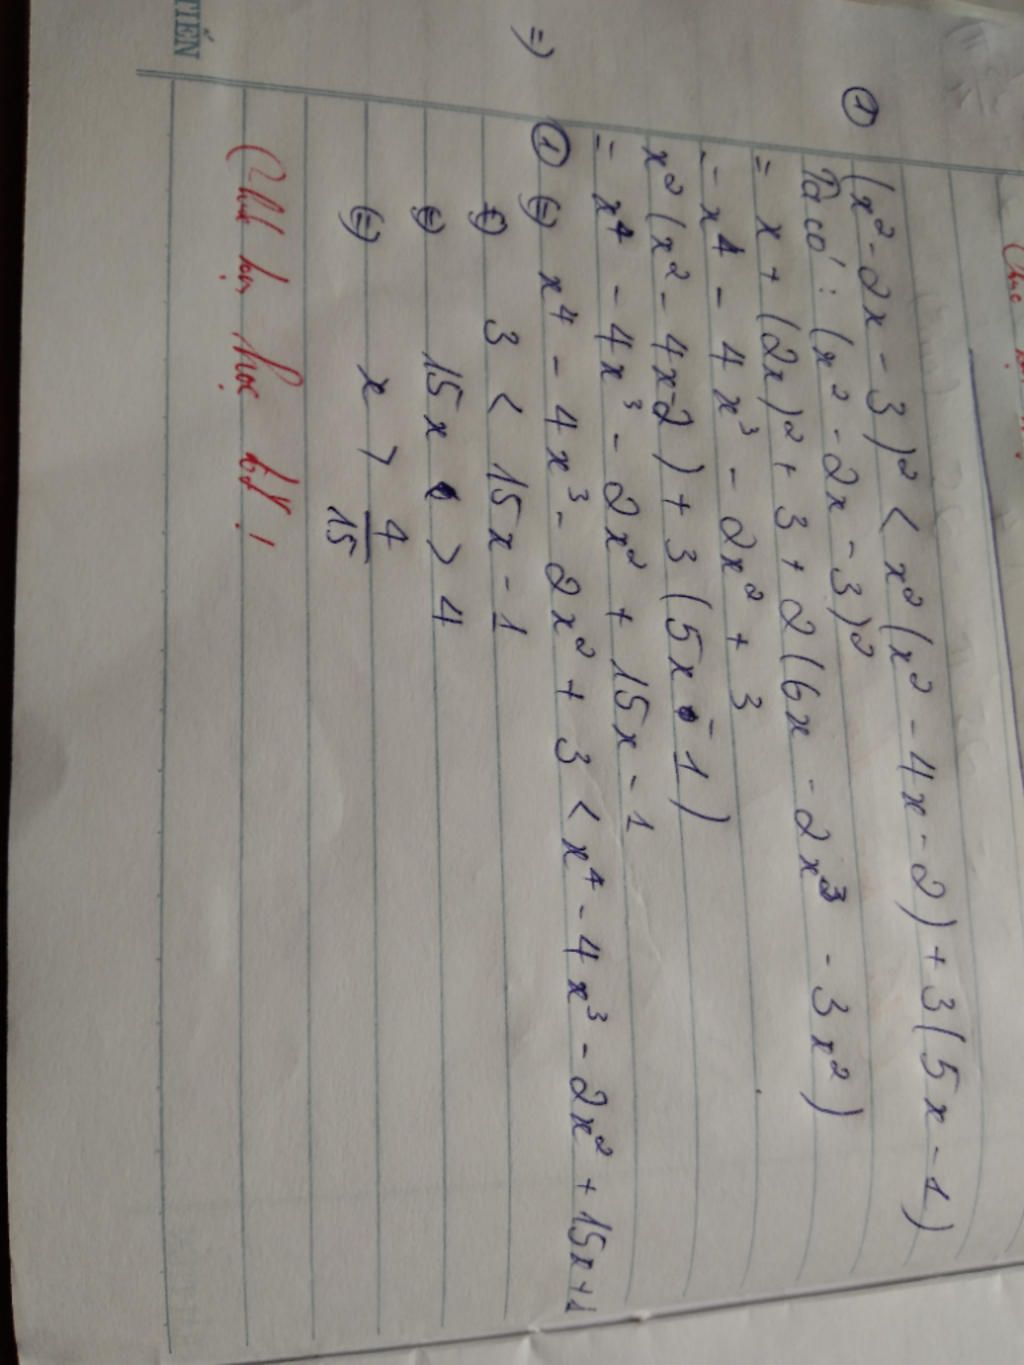 ① (x² - 2x - 3)² < x² (x² - 4x - 2) + 3(5x - 1)
Ta có : (x² - 2x - 3)²
= x + (2x)² + 3 + 2 (6x - 2x³ - 3x²)
= x⁴ - 4x³ - 2x² + 3
x² (x² - 4x - 2) + 3 (5x - 1)
= x⁴ - 4x³ - 2x² + 15x - 1
=> ① <=> x⁴ - 4x³ - 2x² + 3 < x⁴ - 4x³ - 2x² + 15x + 1
<=> 3 < 15x - 1
<=> 15x > 4
<=> x > 4/15
Chúc bạn học tốt !
TIẾN